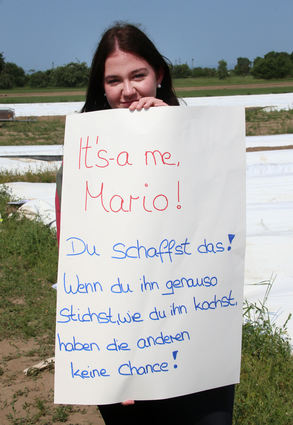 It's-a me,
Mario!
Du schaffst das!
Wenn du ihn genauso
stichst, wie du ihn kochst,
haben die anderen
keine Chance!